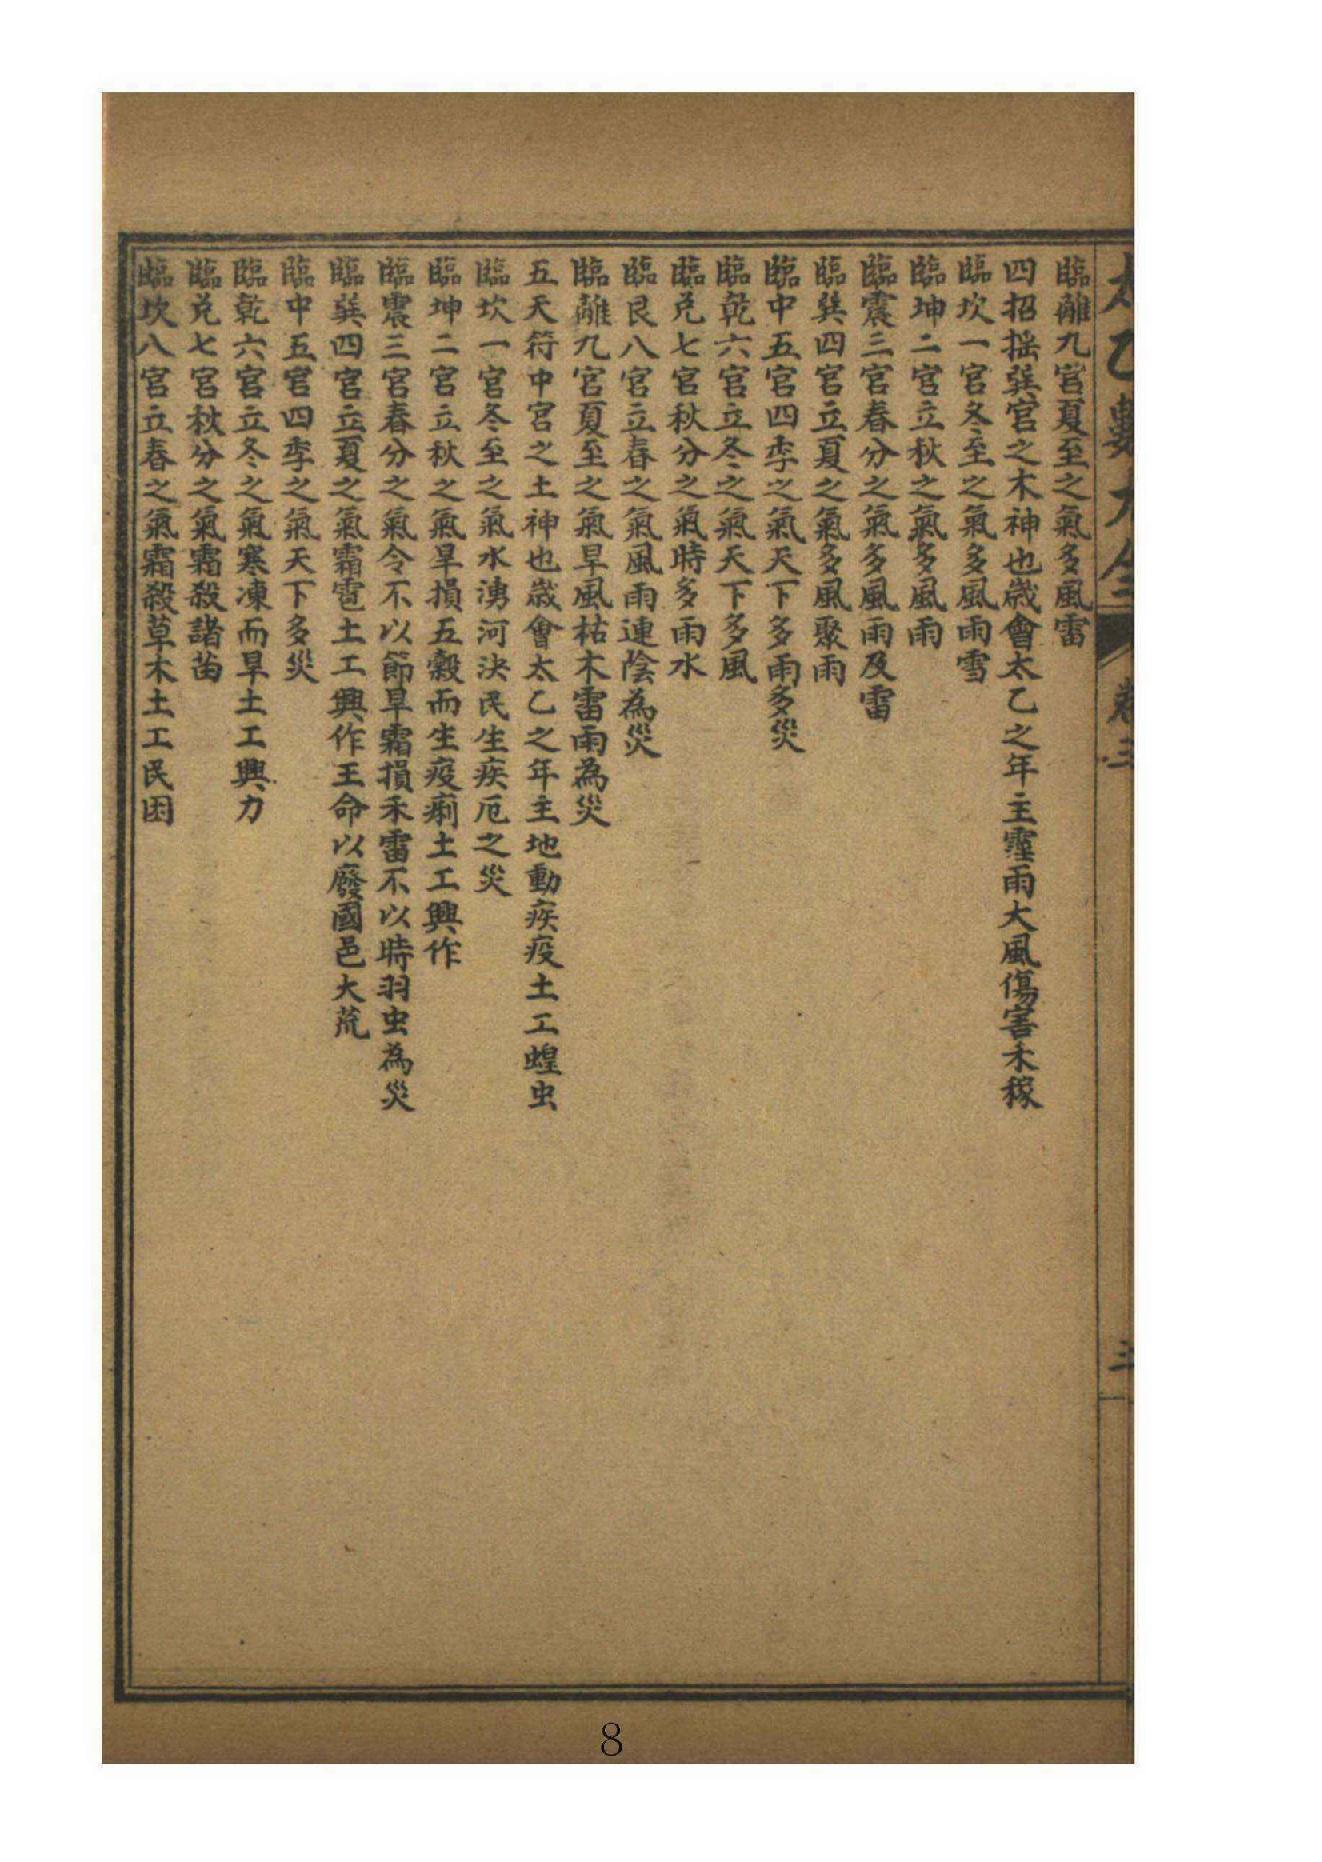 太乙數大全 卷三 三
臨離九宮夏至之氣多風雷
四招摇巽宮之木神也歲會太乙之年主霪雨大風傷害禾稼
臨坎一宮冬至之氣多風雨雪
臨坤二宮立秋之氣多風雨
臨震三宮春分之氣多風雨及雷
臨巽四宮立夏之氣多風聚雨
臨中五宮四季之氣天下多雨多災
臨乾六宮立冬之氣天下多風
臨兌七宮秋分之氣時多雨水
臨艮八宮立春之氣風雨連陰為災
臨離九宮夏至之氣旱風枯木雷雨為災
五天符中宮之土神也歲會太乙之年主地動疾疫土工蝗虫
臨坎一宮冬至之氣水湧河決民生疾厄之災
臨坤二宮立秋之氣旱損五穀而生疫痢土工興作
臨震三宮春分之氣令不以節旱霜損禾雷不以時羽虫為災
臨巽四宮立夏之氣霜雹土工興作王命以廢國邑大荒
臨中五宮四季之氣天下多災
臨乾六宮立冬之氣寒凍而旱土工興力
臨兌七宮秋分之氣霜殺諸苗
臨坎八宮立春之氣霜殺草木土工民困
8